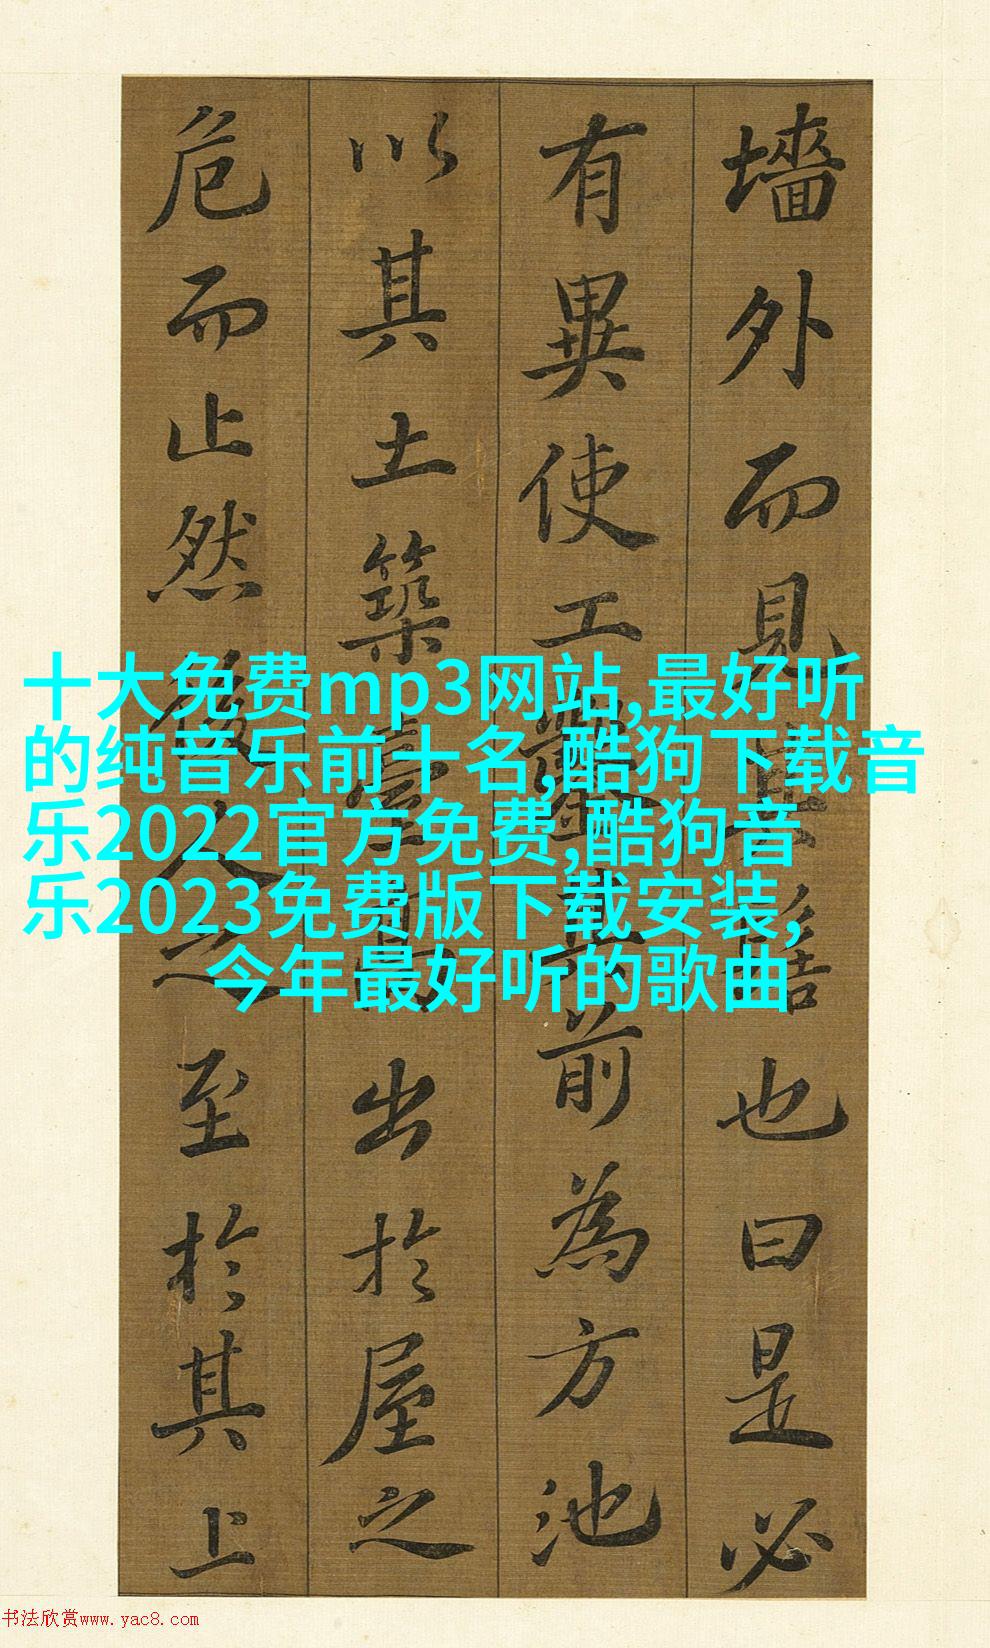 墻外而見其髻也曰是必
有異使工鑿其前為方池
以其土築臺高出於屋之
危而止然後人之至於其上
十大免费mp3网站,最好听
的纯音乐前十名,酷狗下载音
乐2022官方免费,酷狗音
乐2023免费版下载安装,
今年最好听的歌曲
书法欣赏www.yac8.com